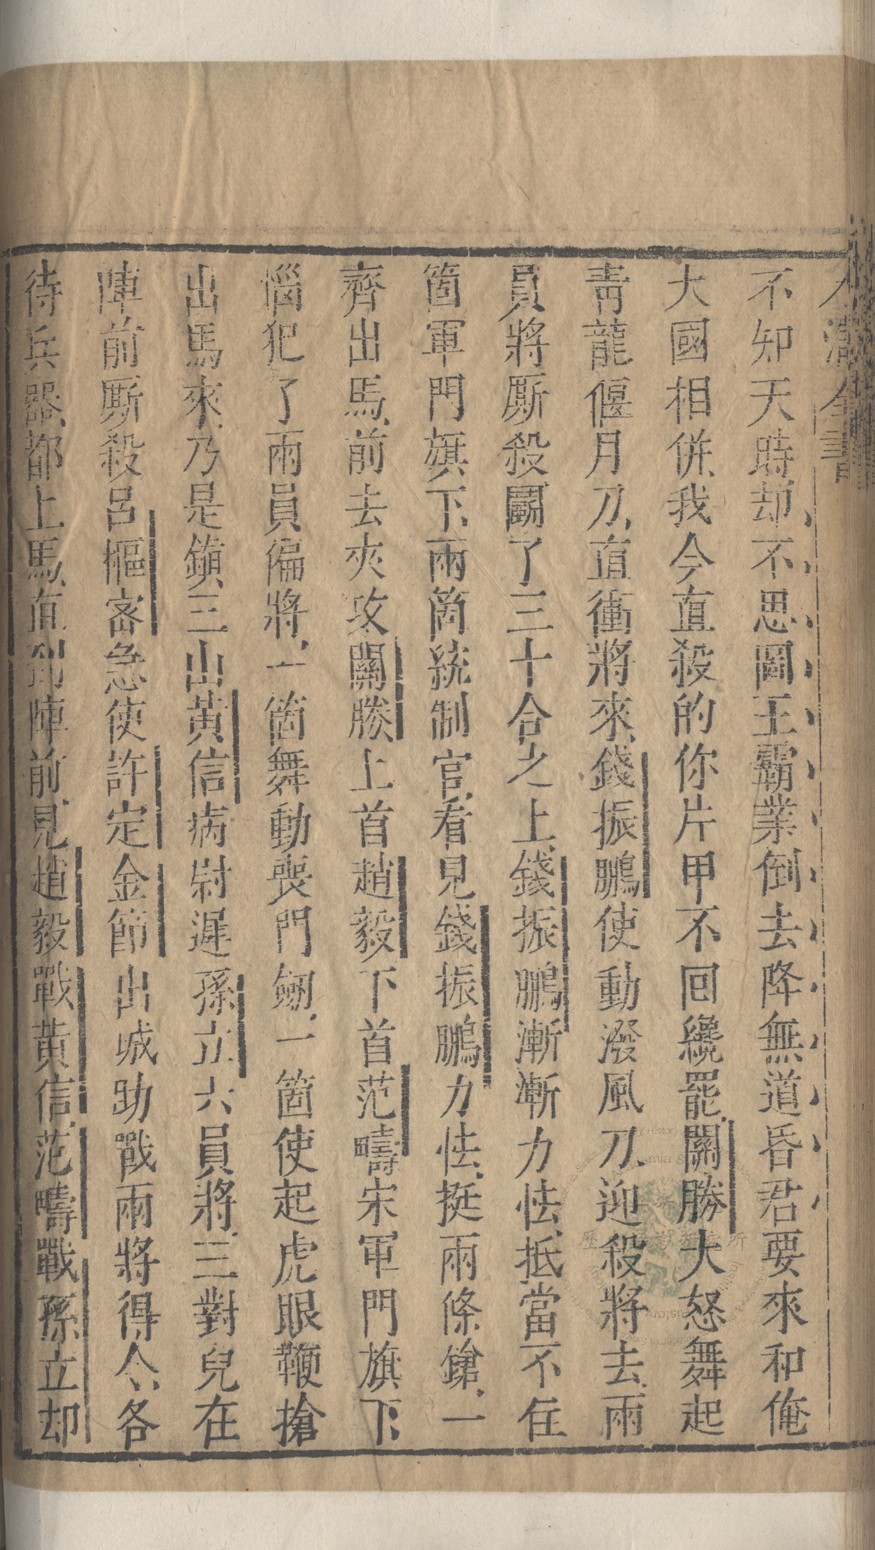 水滸全書
不知天時却不思圖王霸業倒去降無道昏君要來和俺
大國相併我今直殺的你片甲不回纔罷關勝大怒舞起
青龍偃月刀直衝將來錢振鵬使動潑風刀迎殺將去兩
員將厮殺鬭了三十合之上錢振鵬漸漸力怯抵當不住
箇軍門旗下兩箇統制官看見錢振鵬力怯挺兩條鎗一
齊出馬前去夾攻關勝上首趙毅下首范疇宋軍門旗下
惱犯了兩員偏將一箇舞動喪門劒一箇使起虎眼鞭搶
出馬來乃是鎮三山黃信病尉遲孫立六員將三對兒在
陣前厮殺呂樞密急使許定金節出城助戰兩將得令各
待兵器都上馬直到陣前見趙毅戰黃信范疇戰孫立却